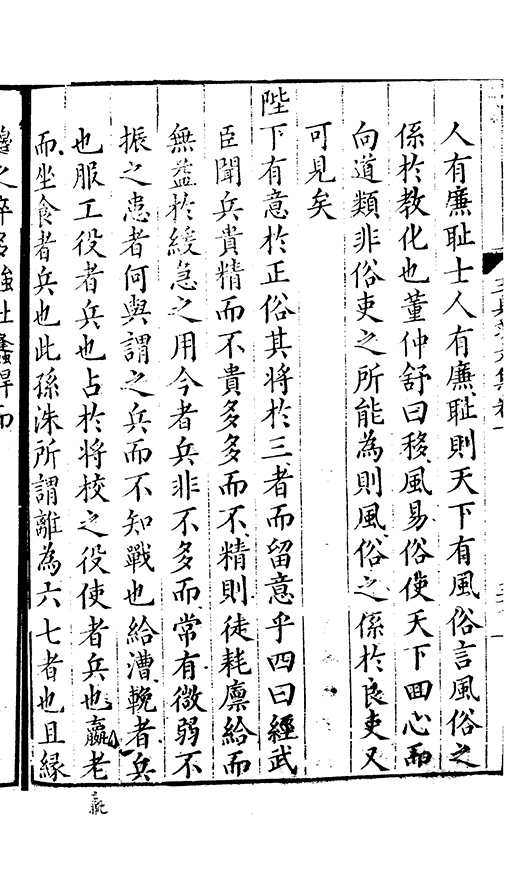 人有廉耻士人有廉耻則天下有風俗言風俗之
係於教化也董仲舒曰移風易俗使天下囬心而
向道類非俗吏之所能為則風俗之係於良吏又
可見矣
陛下有意於正俗其将於三者而留意乎四曰經武
臣聞兵貴精而不貴多多而不精則徒耗廪給而
無益於緩急之用今者兵非不多而常有微弱不
振之患者何與謂之兵而不知戰也給漕輓者兵
也服工役者兵也占於将校之役使者兵也嬴老
而坐食者兵也此孫洙所謂離為六七者也且縁